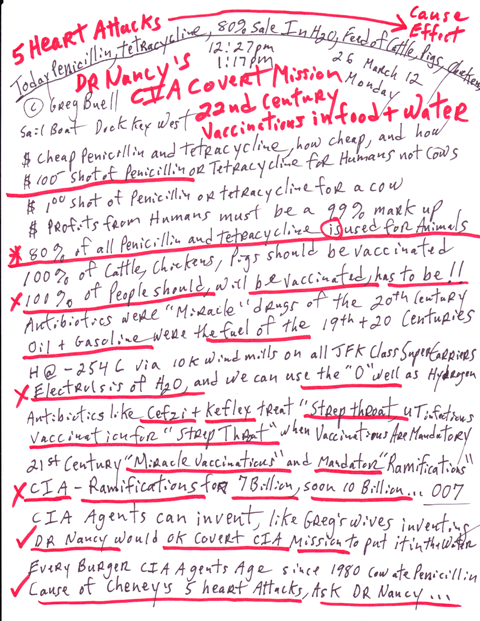 5 Heart Attacks → Cause Effect
Today Penicillin, tetracycline, 80% Sale In H2O, Feed of Cattle, Pigs, Chickens
12:27pm
1:17pm
26 March 12
Monday
DR Nancy's
CIA Covert Mission
22nd Century
Vaccinations in food + Water
(c) Greg Buell
Sail Boat Dock Key West
$ Cheap Penicillin and tetracycline, how cheap, and how
$ 100 shot of Penicillin or Tetracycline for Humans not Cows
$ 1.00 shot of Penicillin or tetracycline for a cow
$ Profits from Humans must be a 99% mark up
* 80% of all Penicillin and tetracycline is used for Animals
100% of Cattle, Chickens, Pigs should be vaccinated
x 100% of People should, will be vaccinated, has to be!!
Antibiotics were "Miracle" drugs of the 20th Century
Oil + Gasoline were the fuel of the 19th + 20 Centuries
H@ -254 C via 10K wind mills on all JFK Class SuperCarriers
x Electrulsis of H2O, and we can use the "O" well as Hydrogen
Antibiotics like Cefzi + Kefley treat "Strep threat, UT infections
Vaccination for "Strep Throat" when Vaccinations Are Mandatory
21st Century "Miracle Vaccinations" and Mandator "Ramifications"
x CIA - Ramifications for 7 Billion, soon 10 Billion... 007
CIA Agents can invent, like Greg's wives inventing
✓ DR Nancy would OK Covert CIA Mission to put it in the Water
Every Burger CIA Agents Age since 1980 Cow ate Penicillin
✓ Cause of Cheney's 5 heart Attacks, Ask DR Nancy...